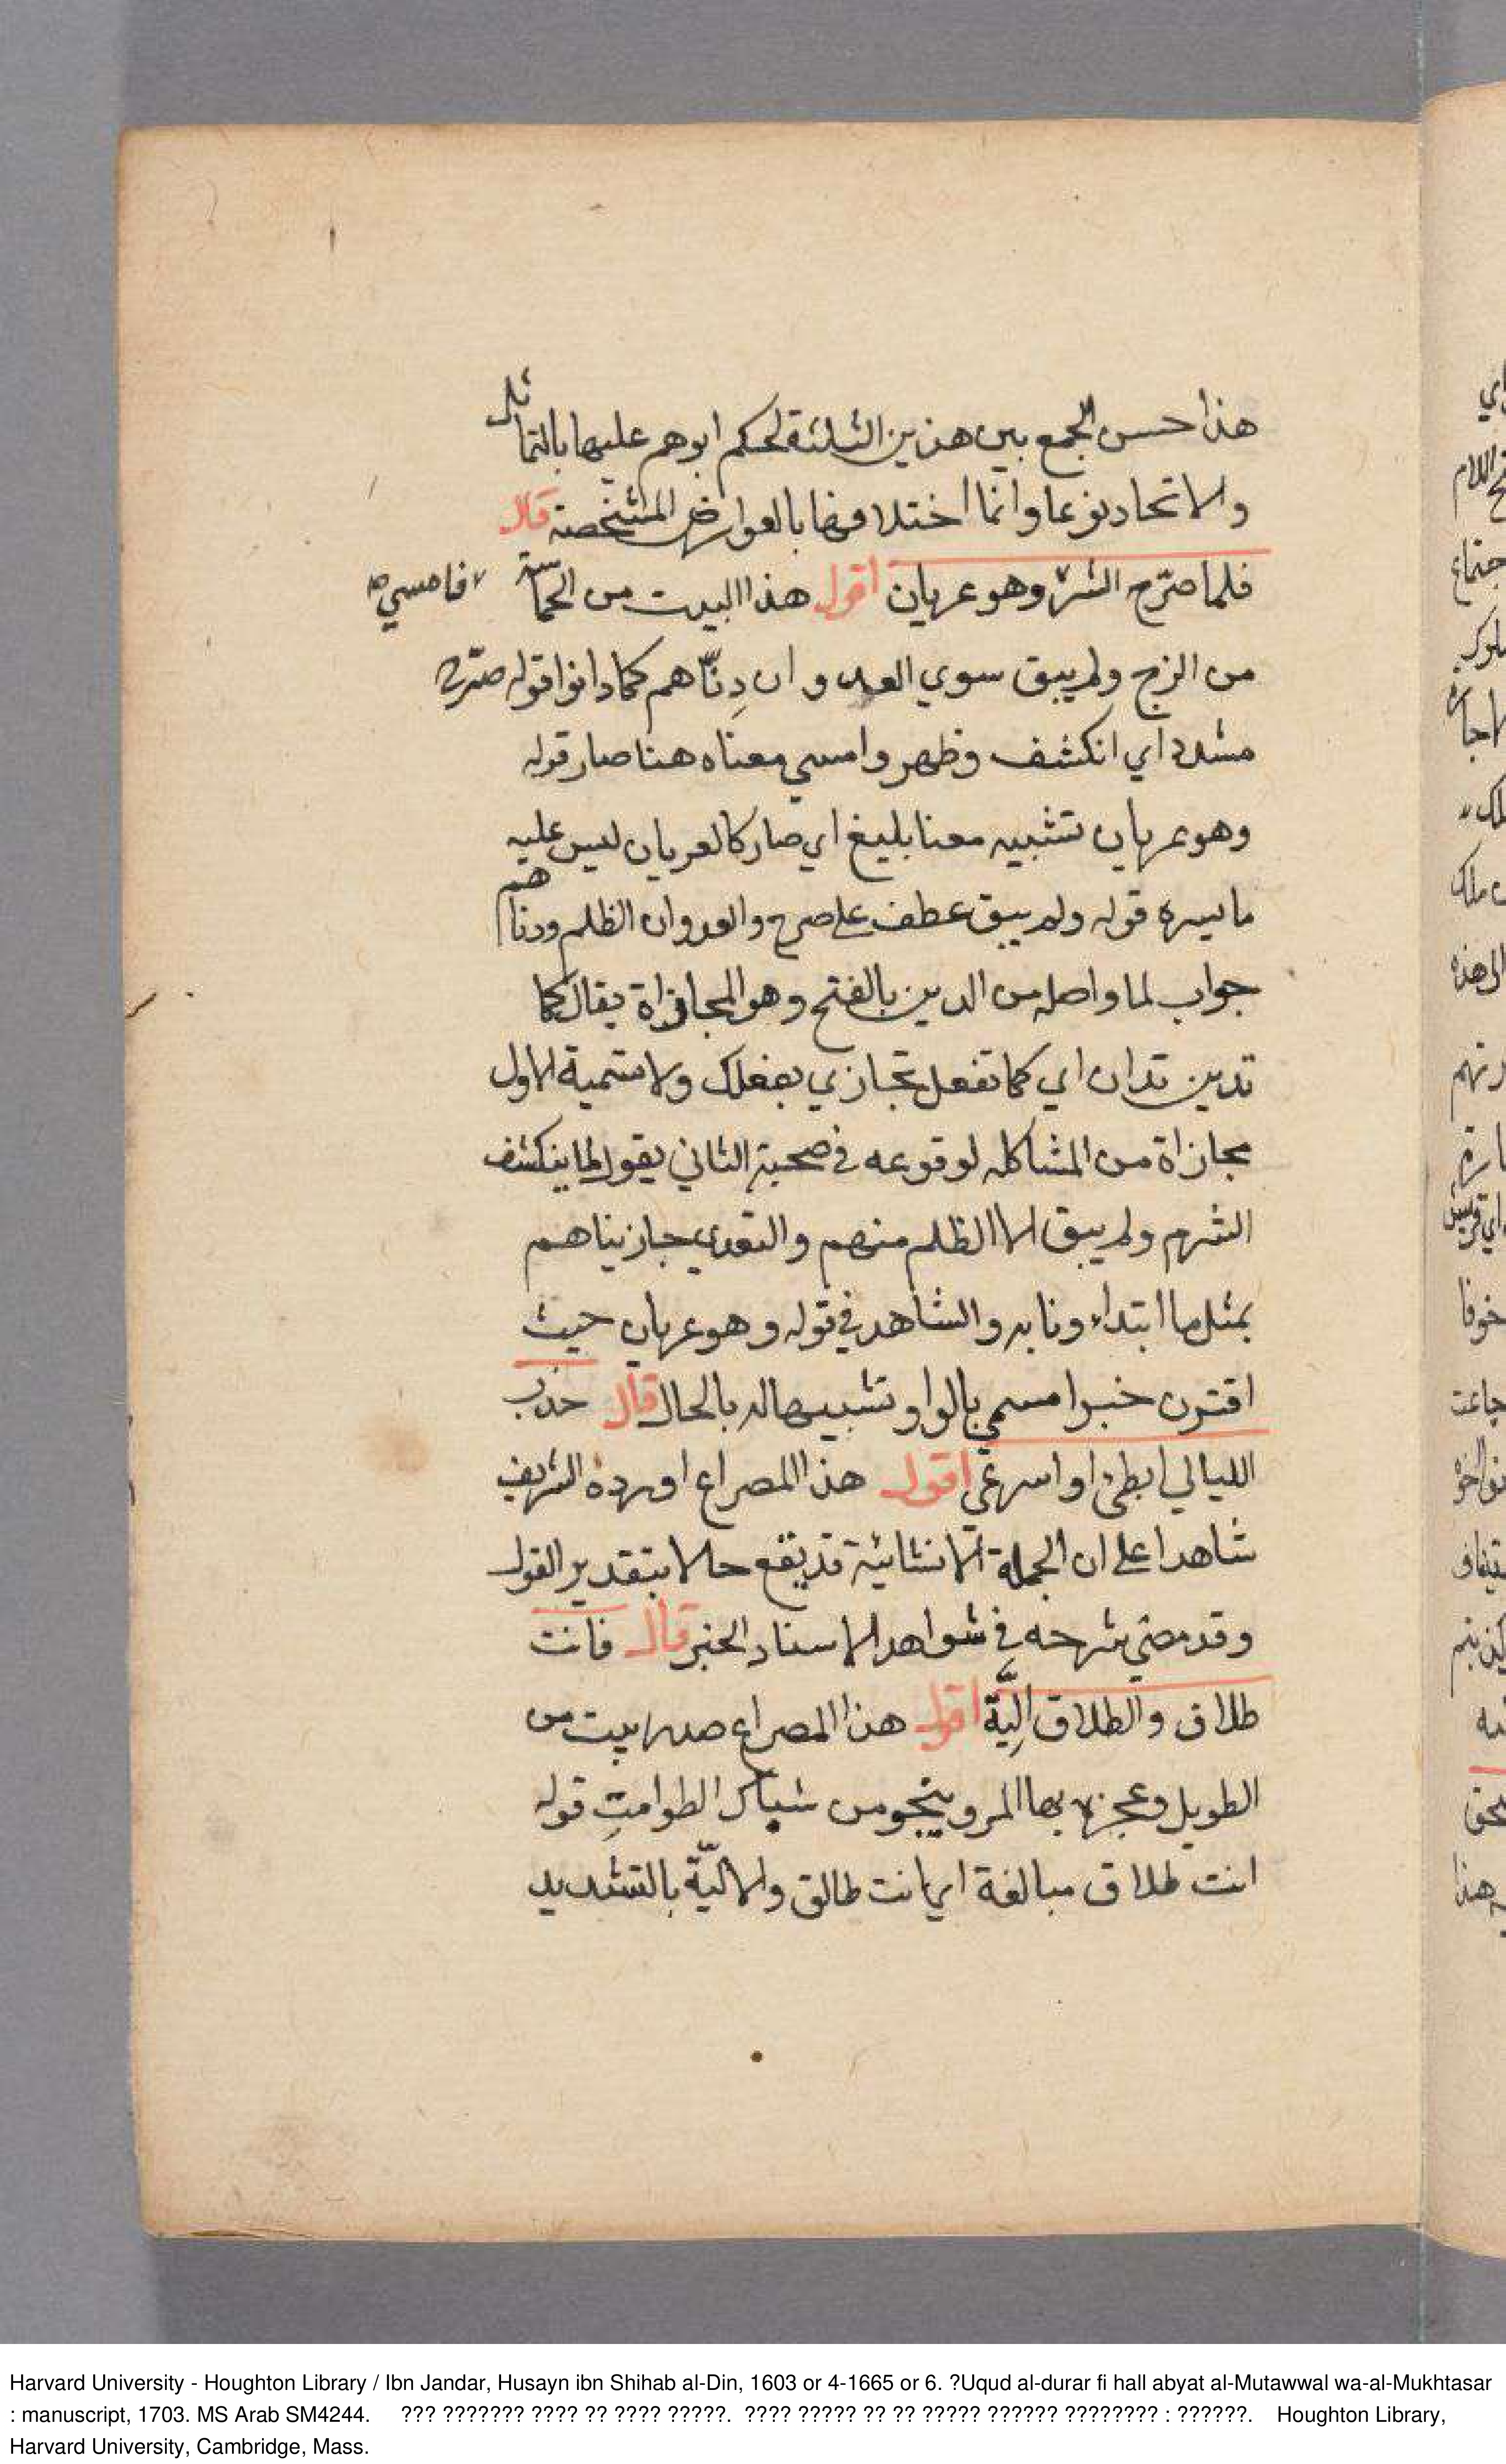 هذا حسن الجمع بين هذين الثلثة لحكم ابوهم عليها بالتماثل
والاتحاد نوعا وانما اختلافها بالعوارض المشخصة قال
فلما صرّح الشر وهو عريان اقول هذا البيت من الحماسة فامسي
من الزج ولم يبق سوي العدوان دِنّاهم كما دانوا قوله صرّح
مشدد اي انكشف وظهر وامسي معناه هنا صار قوله
وهو عريان تشبيه معنا بليغ اي صار كالعريان ليس عليه
ما يسره قوله ولم يبق عطف على صرح والعدوان الظلم ودناهم
جواب لما واصله من الدين بالفتح وهو المجازاة يقال كما
تدين تدان اي كما تفعل تجازي بفعلك ولا تسمية الاول
مجازاة من المشاكله لوقوعه في صحبة الثاني يقول لما ينكشف
الشرم ولم يبق الا الظلم منهم والتعدي جازيناهم
بمثل ما ابتداءونا به والشاهد في قوله وهو عريان حيث
اقترن خبر امسي بالواو تشبيها له بالحال قال جذب
الليالي ابطئ او اسرعي اقول هذا المصراع اورده الشريف
شاهدا على ان الجملة الانشائية قد يقع حالا بتقدير القول
وقد مضي شرحه في شواهد الاسناد الخبر قال فانت
طلاق والطلاق اَلِيَّة اقول هذا المصراع صدر بيت من
الطويل وعجزه بها المرو ينجو من شباك الطوامتِ قوله
انت طلاق مبالغة اي انت طالق والاليّة بالتشديد
Harvard University - Houghton Library / Ibn Jandar, Husayn ibn Shihab al-Din, 1603 or 4-1665 or 6. ?Uqud al-durar fi hall abyat al-Mutawwal wa-al-Mukhtasar
: manuscript, 1703. MS Arab SM4244. ??? ??????? ???? ?? ???? ?????. ???? ????? ?? ?? ????? ?????? ???????? : ??????. Houghton Library,
Harvard University, Cambridge, Mass.